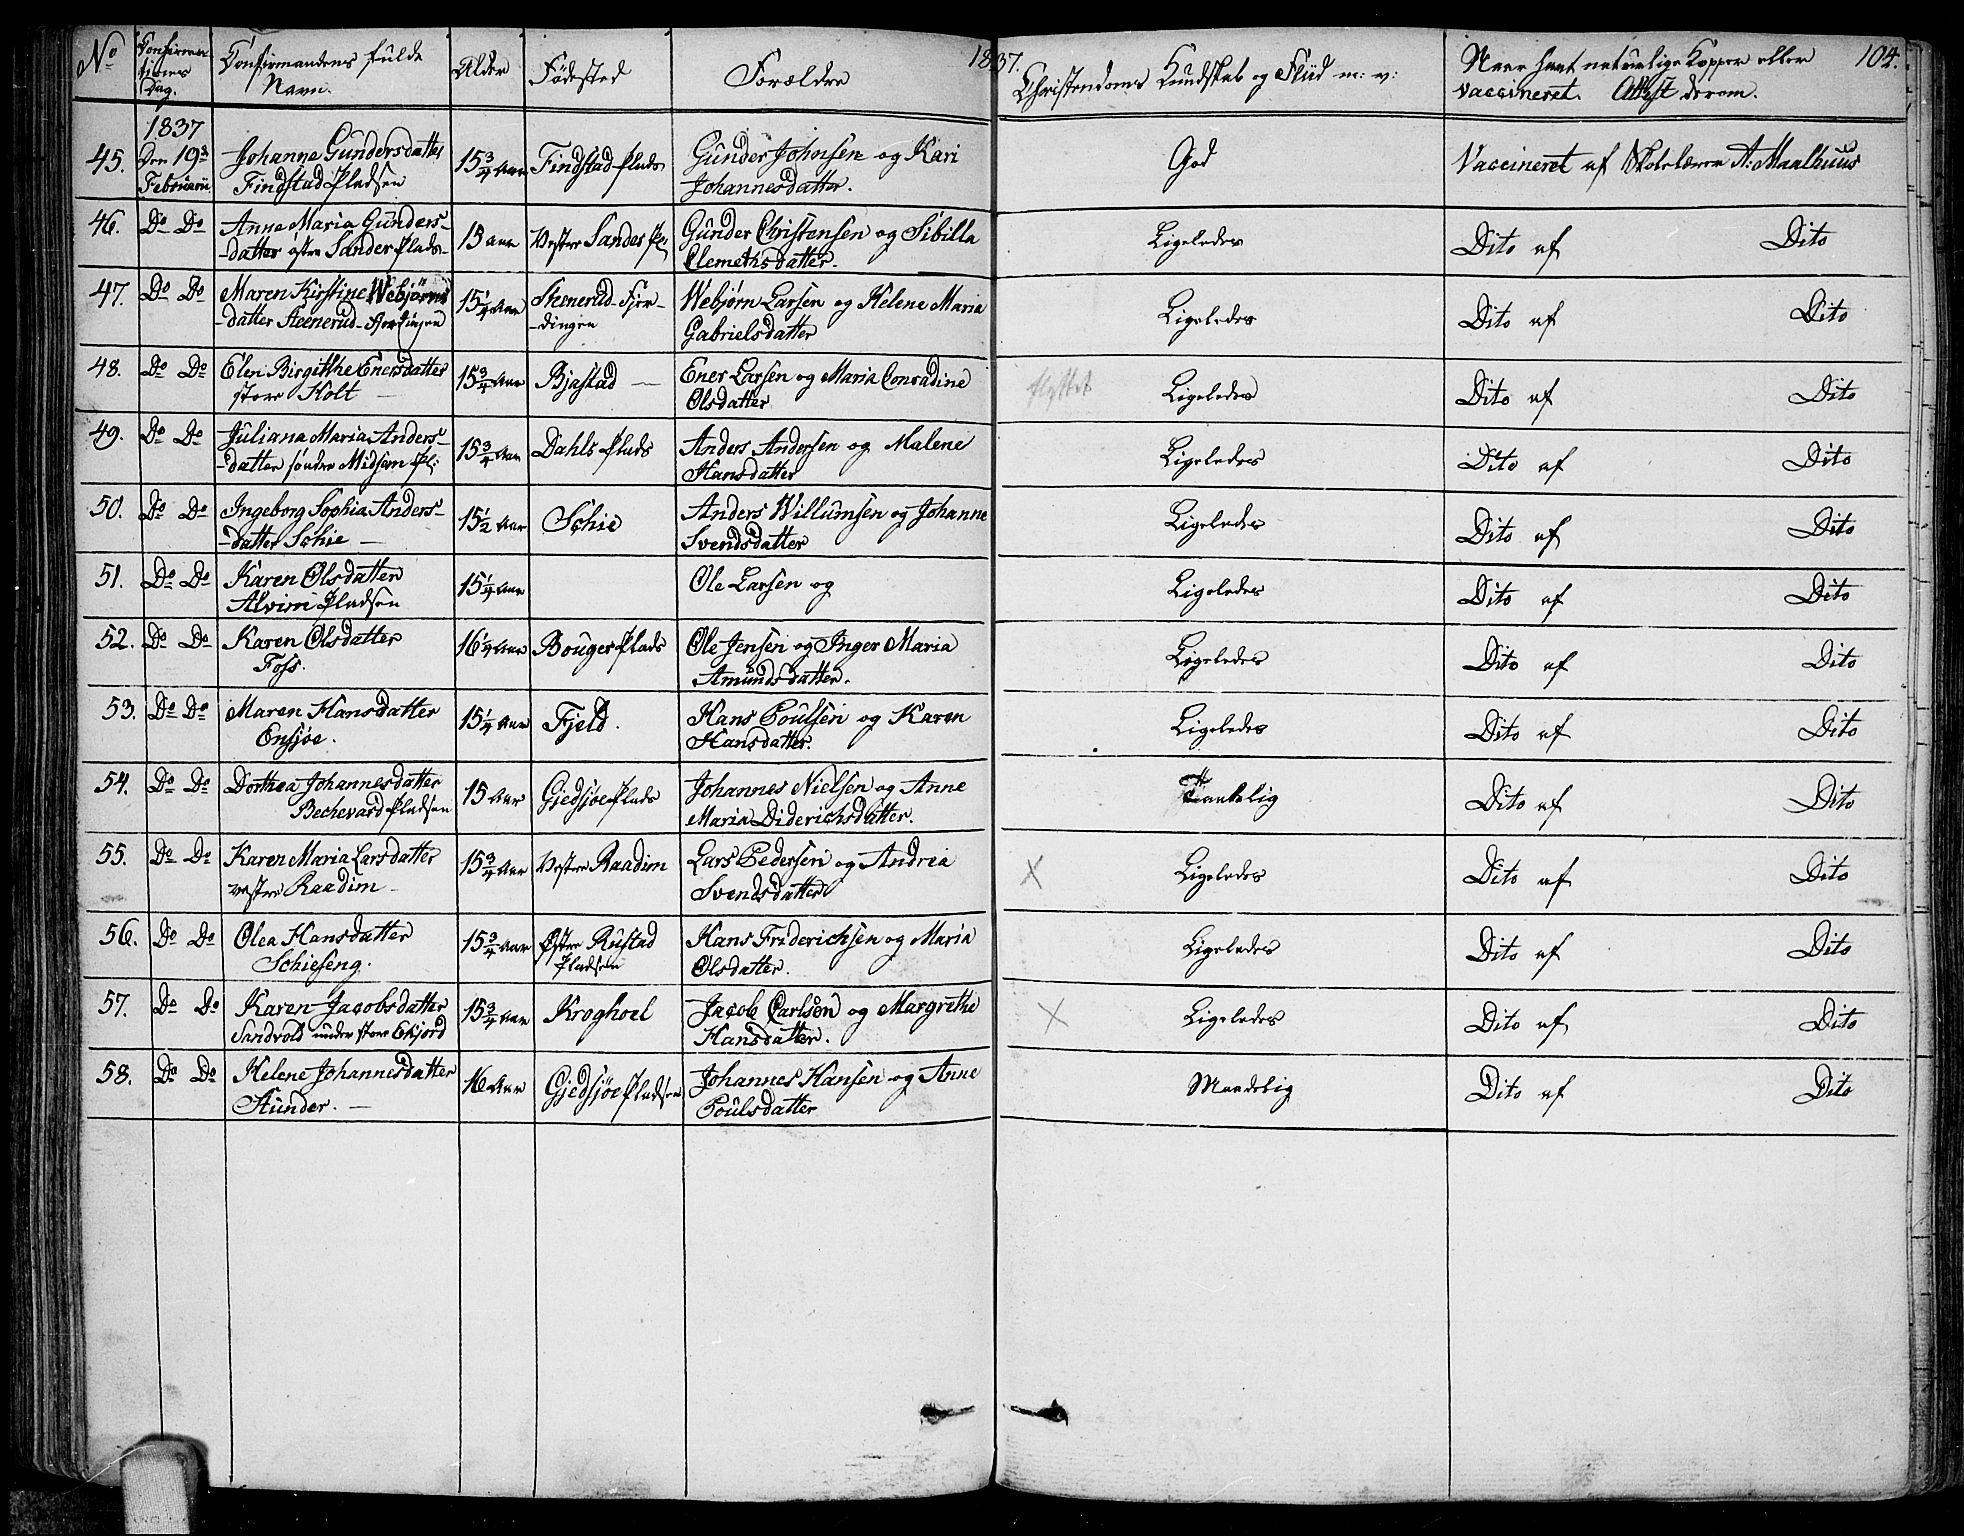 1837. 104.
No Confirmationens Dag. Confirmandens fulde Navn. Alder Fødested Forældre Christendoms Kundskab og Fliid m: v: Naar havt naturlige Kopper eller vaccineret. Attest derom.
45. 1837 Den 19de Februarii Johanne Gundersdatter 15¾ Aar Findstad Plads Gunder Johnsen og Kari God Vaccineret af Skolelærer A. Maalhuus
Findstad Pladsen Johannesdatter.
46. Do Do Anne Maria Gunders- 15 Aar Vestre Sander Pl: Gunder Christensen og Sibilla Ligeledes Dito af Dito
-datter østre Sander Plads- Clemethsdatter.
47. Do Do Maren Kirstine Webjørns 15¼ Aar Stenerud-Fjer- Webjørn Larsen og Helene Maria Ligeledes Dito af Dito
-datter Steenerud-Fjerdingen -dingen Gabrielsdatter
48. Do Do Elen Birgitthe Enersdatter 15¾ Aar Bjastad — Ener Larsen og Maria Conradine flyttet Ligeledes Dito af Dito
store Holt — Olsdatter
49. Do Do Juliana Maria Anders- 15¾ Aar Dahls Plads Anders Andersen og Malene Ligeledes Dito af Dito
-datter søndre Midsem Pl: Hansdatter
50. Do Do Ingeborg Sophia Anders- 15½ Aar Schie Anders Willumsen og Johanne Ligeledes Dito af Dito
-datter Schie — Svendsdatter
51. Do Do Karen Olsdatter 15¼ Aar Ole Larsen og Ligeledes Dito af Dito
Alvim Pladsen
52. Do Do Karen Olsdatter 16¼ Aar Bouger Plads Ole Jensen og Inger Maria Ligeledes Dito af Dito
Foss. Amundsdatter.
53. Do Do Maren Hansdatter 15¼ Aar Fjeld. Hans Poulsen og Karen Ligeledes Dito af Dito
Ensjøe. Hansdatter.
54. Do Do Dorthea Johannesdatter 15 Aar Gjedsjøe Plads Johannes Nielsen og Anne Taalelig Dito af Dito
Bechevard Pladsen Maria Diderichsdatter.
55. Do Do Karen Maria Larsdatter 15¾ Aar Vestre Raadim Lars Pedersen og Andrea X Ligeledes Dito af Dito
vestre Raadim — Svendsdatter
56. Do Do Olea Hansdatter 15¾ Aar Østre Rustad Hans Friderichsen og Maria Ligeledes Dito af Dito
Schieseng. Pladsen Olsdatter.
57. Do Do Karen Jacobsdatter 15¾ Aar Kroghoel Jacob Carlsen og Margrethe X Ligeledes Dito af Dito
Sandvold under store Ekjord Hansdatter.
58. Do Do Helene Johannesdatter 16 Aar Gjedsjøe Pladsen Johannes Hansen og Anne Maadelig Dito af Dito
Stunder. — Poulsdatter